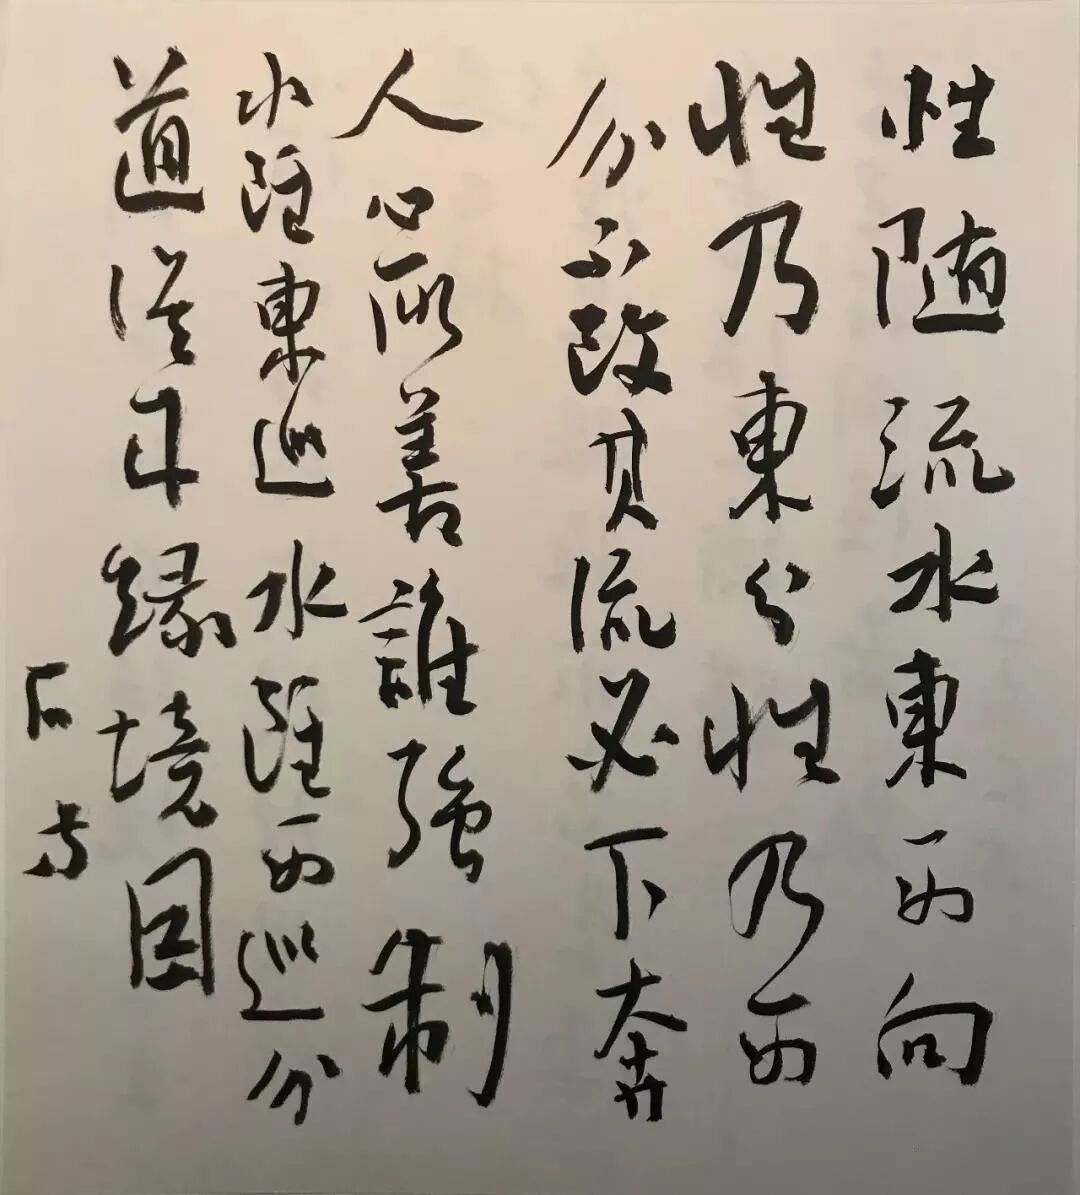 性随流水東西向
性乃東兮性乃西
兮不改其流必下奔
人心所善誰強制
水東巡水西巡兮
道從緣境因
石